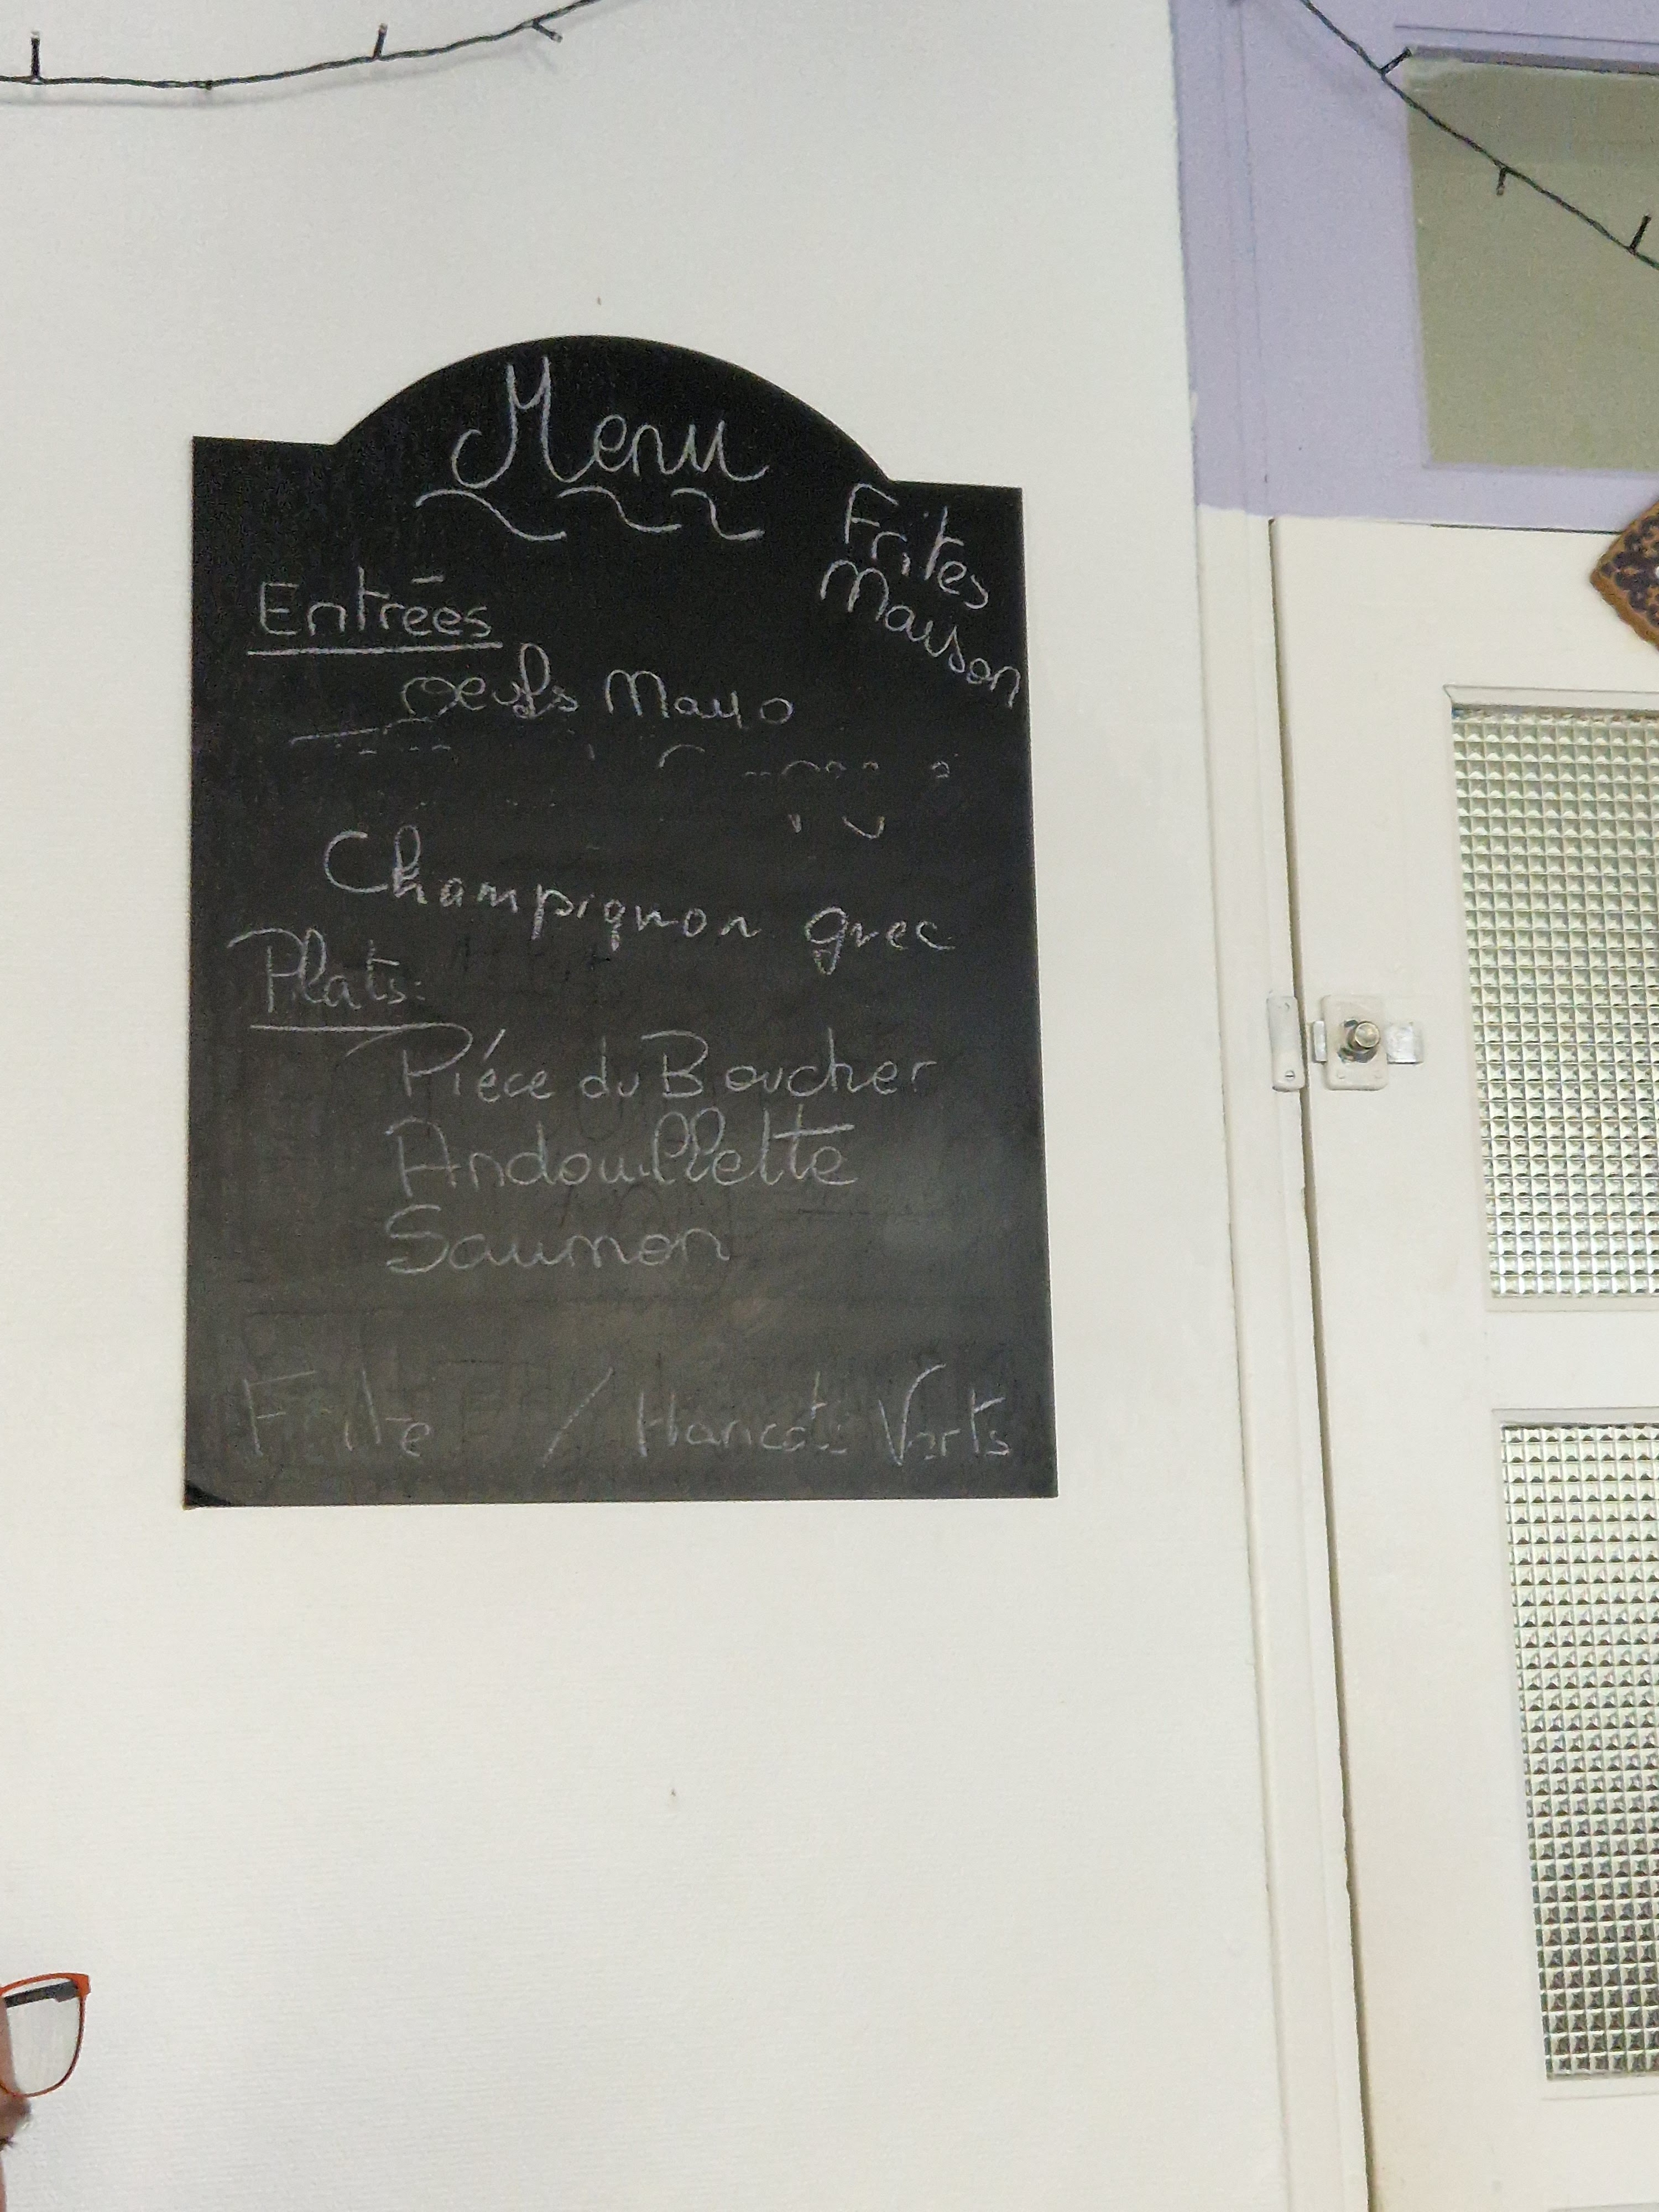 Menu
Frites
Maison
Entrées
oeufs Mayo
Champignon grec
Plats:
Piéce du Boucher
Andouillette
Saumon
Frite / Haricots Verts